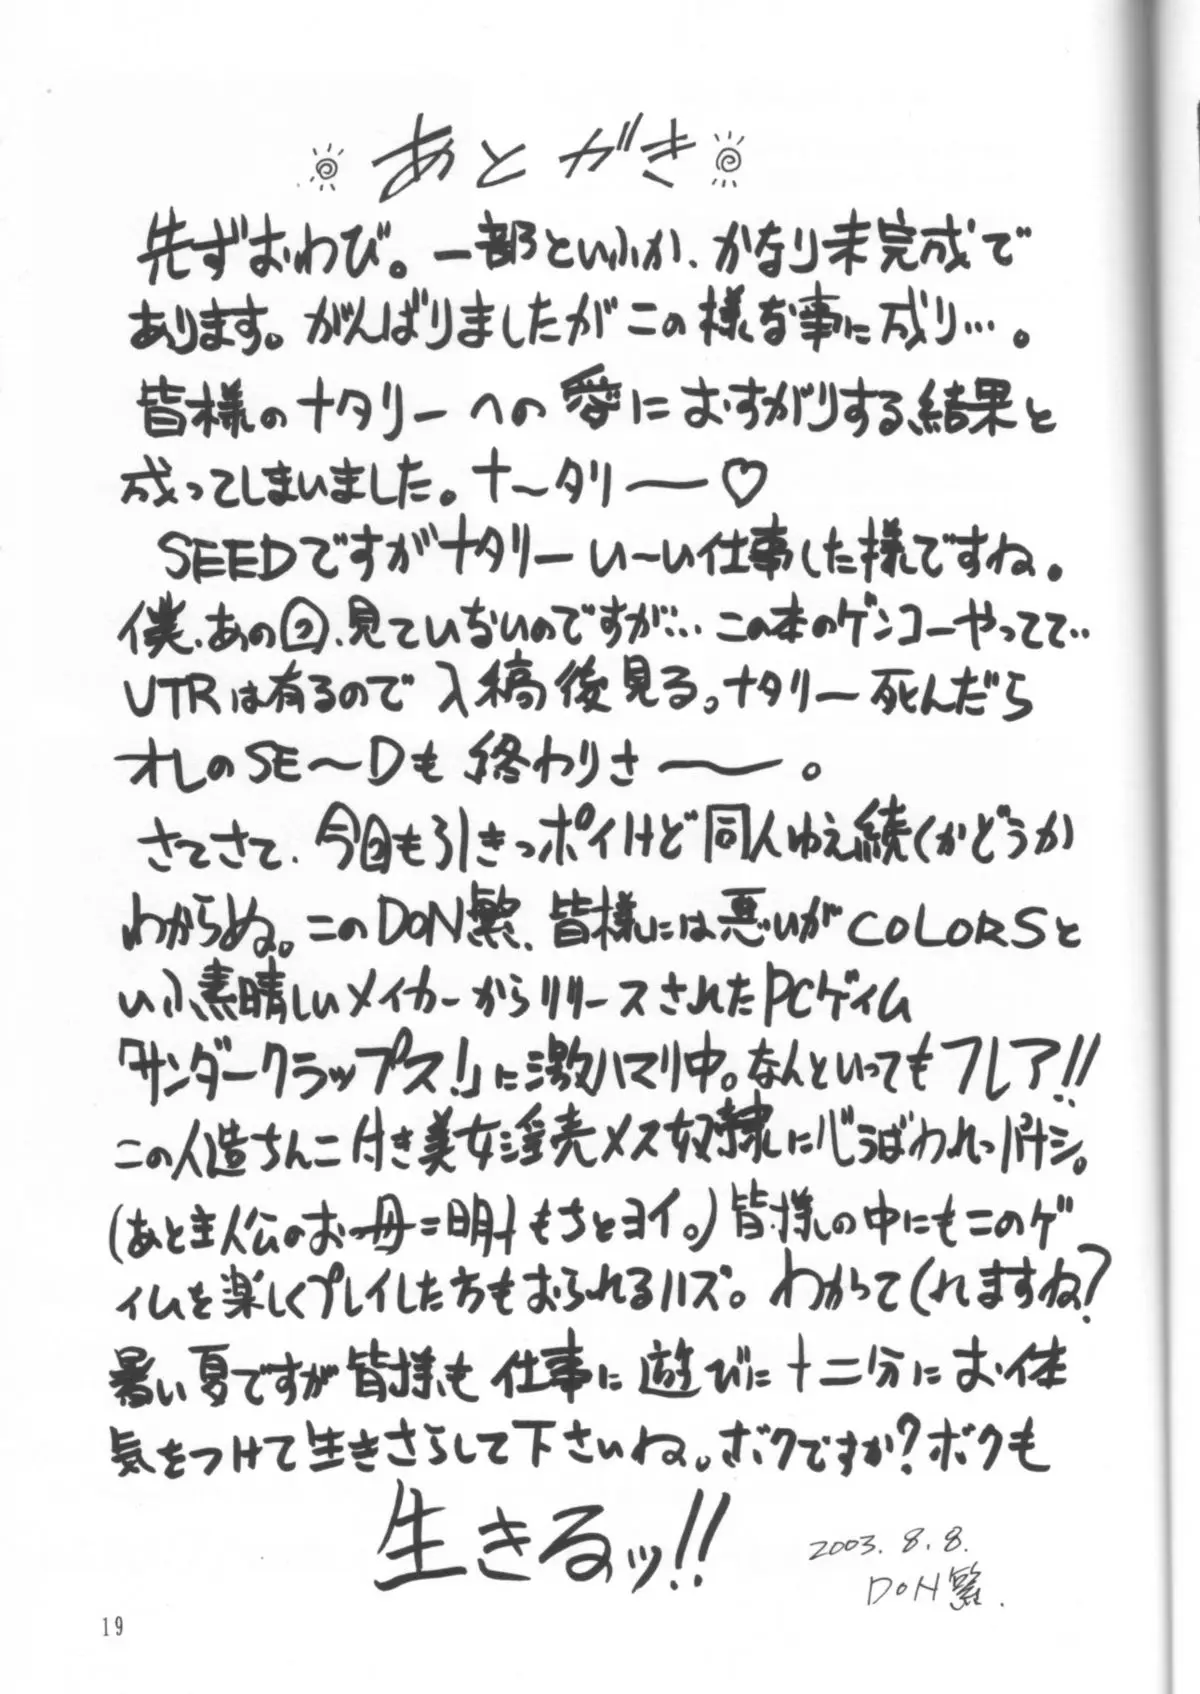 あとがき
先ずおわび。一部といふか、かなり未完成で
あります。がんばりましたがこの様な事に成り…。
皆様のナタリーへの愛におすがりする結果と
成ってしまいました。ナ〜タリー♡
SEEDですがナタリーい〜い仕事した様ですね。
僕、あの回、見ていないのですが…この本のゲンコーやってて‥
VTRは有るので入稿後見る。ナタリー死んだら
オレのSE〜Dも終わりさ――。
さてさて、今回も引きっポイけど同人ゆえ続くかどうか
わからぬ。このDON繁、皆様には悪いがCOLORSと
いふ素晴しいメイカーからリリースされたPCゲイム
「サンダークラップス!」に激ハマリ中。なんといってもフレア!!
この人造ちんこ付き美女淫売メス奴隷に心うばわれっパナシ。
(あと主人公のお母 もちとヨイ。)皆様の中にもこのゲ
イムを楽しくプレイした方もおられるハズ。わかってくれますね?
暑い夏ですが皆様も仕事に遊びに十二分にお体
気をつけて生きさらして下さいね。ボクですか?ボクも
生きるッ!!
2003.8.8.
DON繁.
19